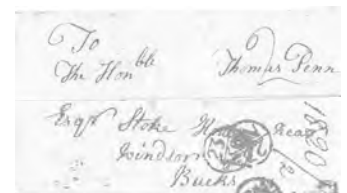 To
The Honble Thomas Penn
Esqr Stoke near
Windsor
Bucks